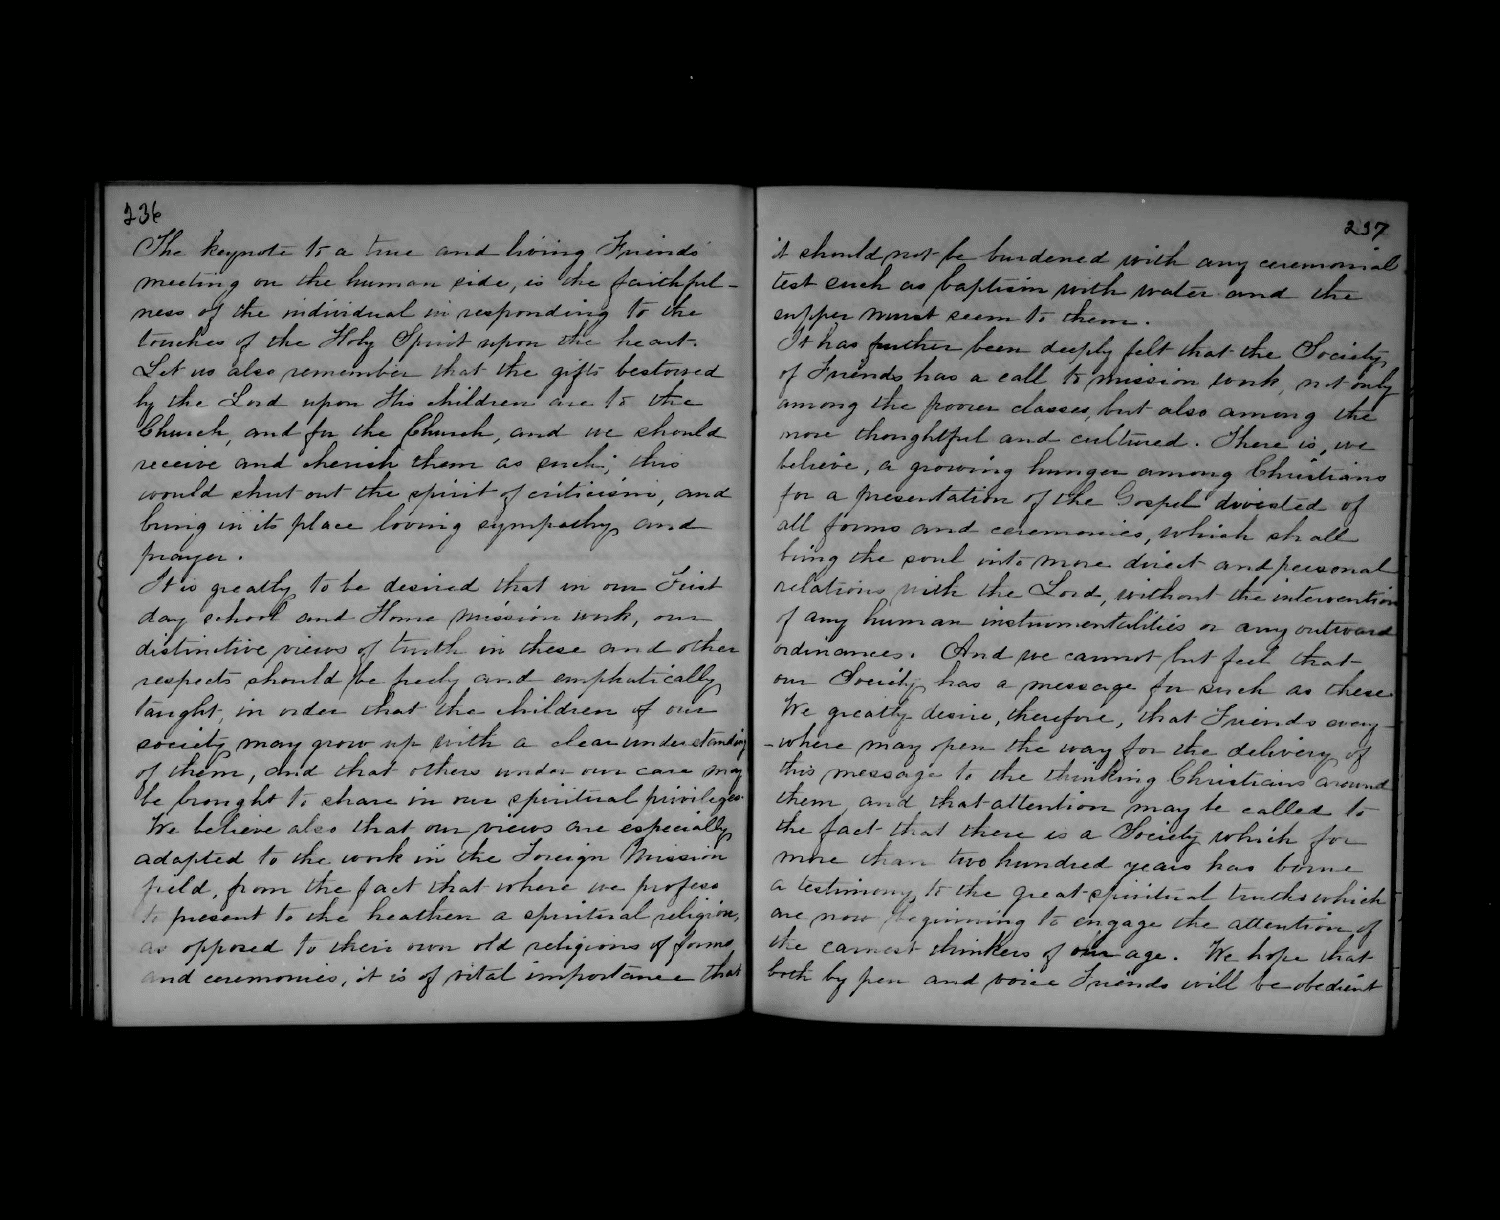 236
The keynote to a true and living Friends'
meeting on the human side, is the faithful-
ness of the individual in responding to the
touches of the Holy Spirit upon the heart.
Let us also remember that the gifts bestowed
by the Lord upon His children are to the
Church, and for the Church, and we should
receive and cherish them as such; this
would shut out the spirit of criticism, and
bring in its place loving sympathy and
prayer.
It is greatly to be desired that in our First
day school and Home Mission work, our
distinctive views of truth in these and other
respects should be freely and emphatically
taught, in order that the children of our
society may grow up with a clear understanding
of them, and that others under our care may
be brought to share in our spiritual privileges.
We believe also that our views are especially
adapted to the work in the Foreign Mission
field, from the fact that where we profess
to present to the heathen a spiritual religion,
as opposed to their own old religions of forms
and ceremonies, it is of vital importance that
237
it should not be burdened with any ceremonial
test such as baptism with water and the
supper must seem to them.
It has further been deeply felt that the Society
of Friends has a call to mission work, not only
among the poorer classes, but also among the
more thoughtful and cultured. There is, we
believe, a growing hunger among Christians
for a presentation of the Gospel divested of
all forms and ceremonies, which shall
bring the soul into more direct and personal
relations with the Lord, without the intervention
of any human instrumentalities or any outward
ordinances. And we cannot but feel that
our Society has a message for such as these
We greatly desire, therefore, that Friends every-
-where may open the way for the delivery of
this message to the thinking Christians around
them, and that attention may be called to
the fact that there is a Society which for
more than two hundred years has borne
a testimony to the great spiritual truths which
are now beginning to engage the attention of
the earnest thinkers of our age. We hope that
both by pen and voice Friends will be obedient